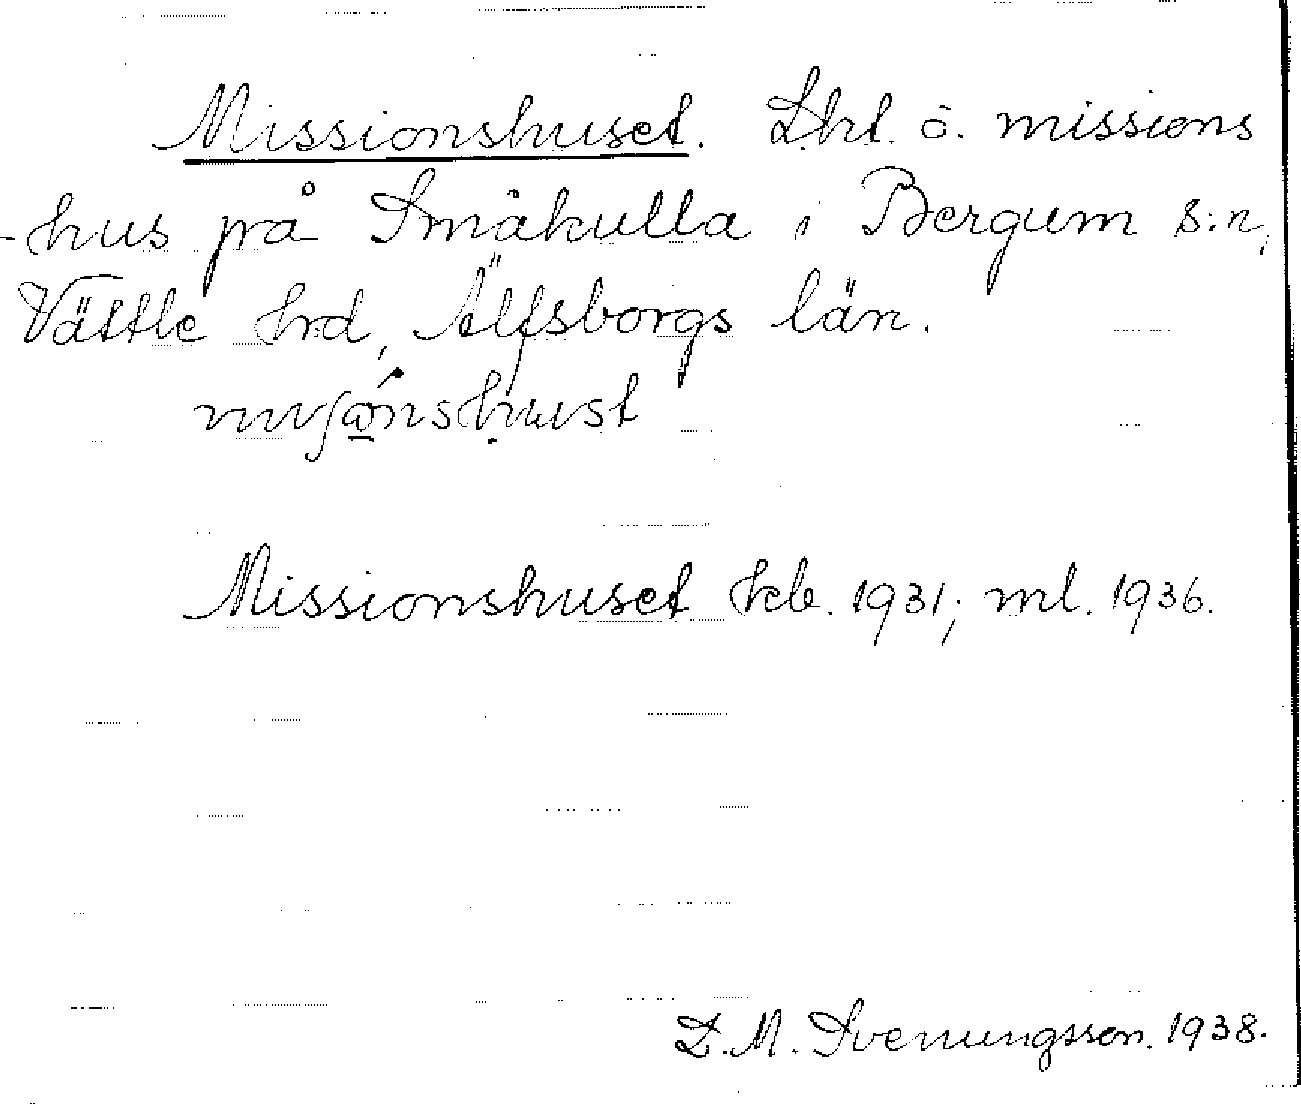 Missionshuset. Lht. o. missions
-hus på Småkulla i Bergum s:n,
Vättle hrd, Älfsborgs län.
Missionshuset kb. 1931; ml. 1936.
L. M. Svenungsson. 1938.